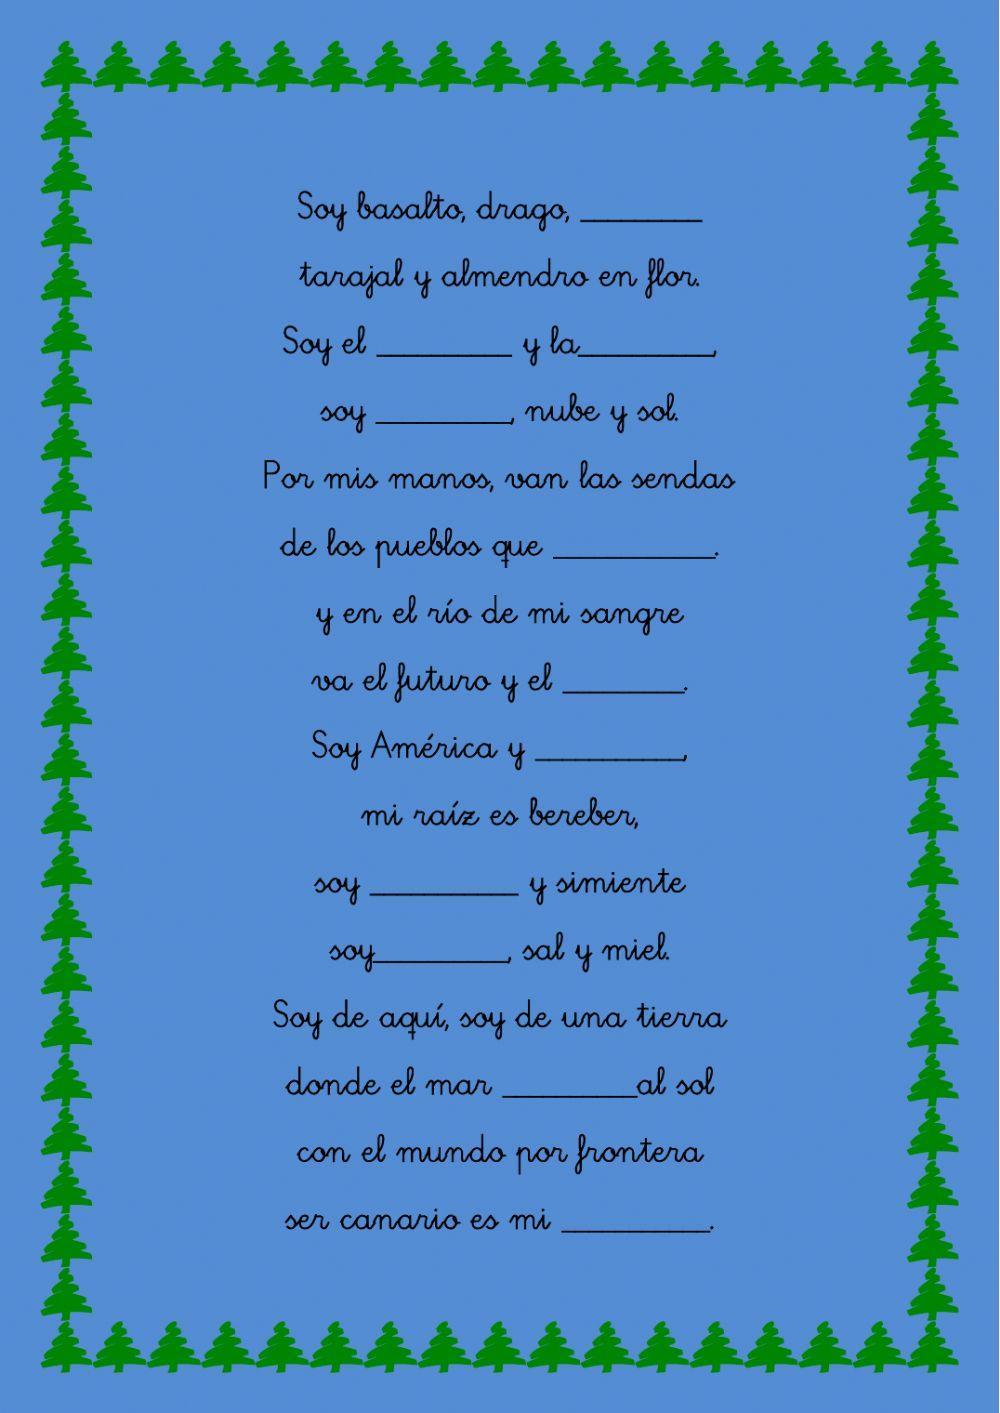 Soy basalto, drago, _________
tarajal y almendro en flor.
Soy el __________ y la__________,
soy __________, nube y sol.
Por mis manos, van las sendas
de los pueblos que ____________.
y en el río de mi sangre
va el futuro y el _________.
Soy América y ___________,
mi raíz es bereber,
soy ___________ y simiente
soy__________, sal y miel.
Soy de aquí, soy de una tierra
donde el mar __________al sol
con el mundo por frontera
ser canario es mi ___________.